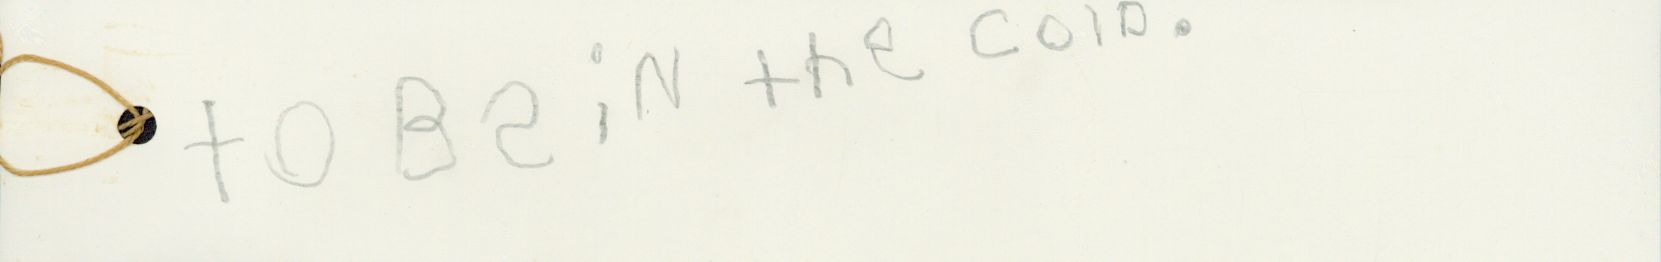 to Be iN the colD.